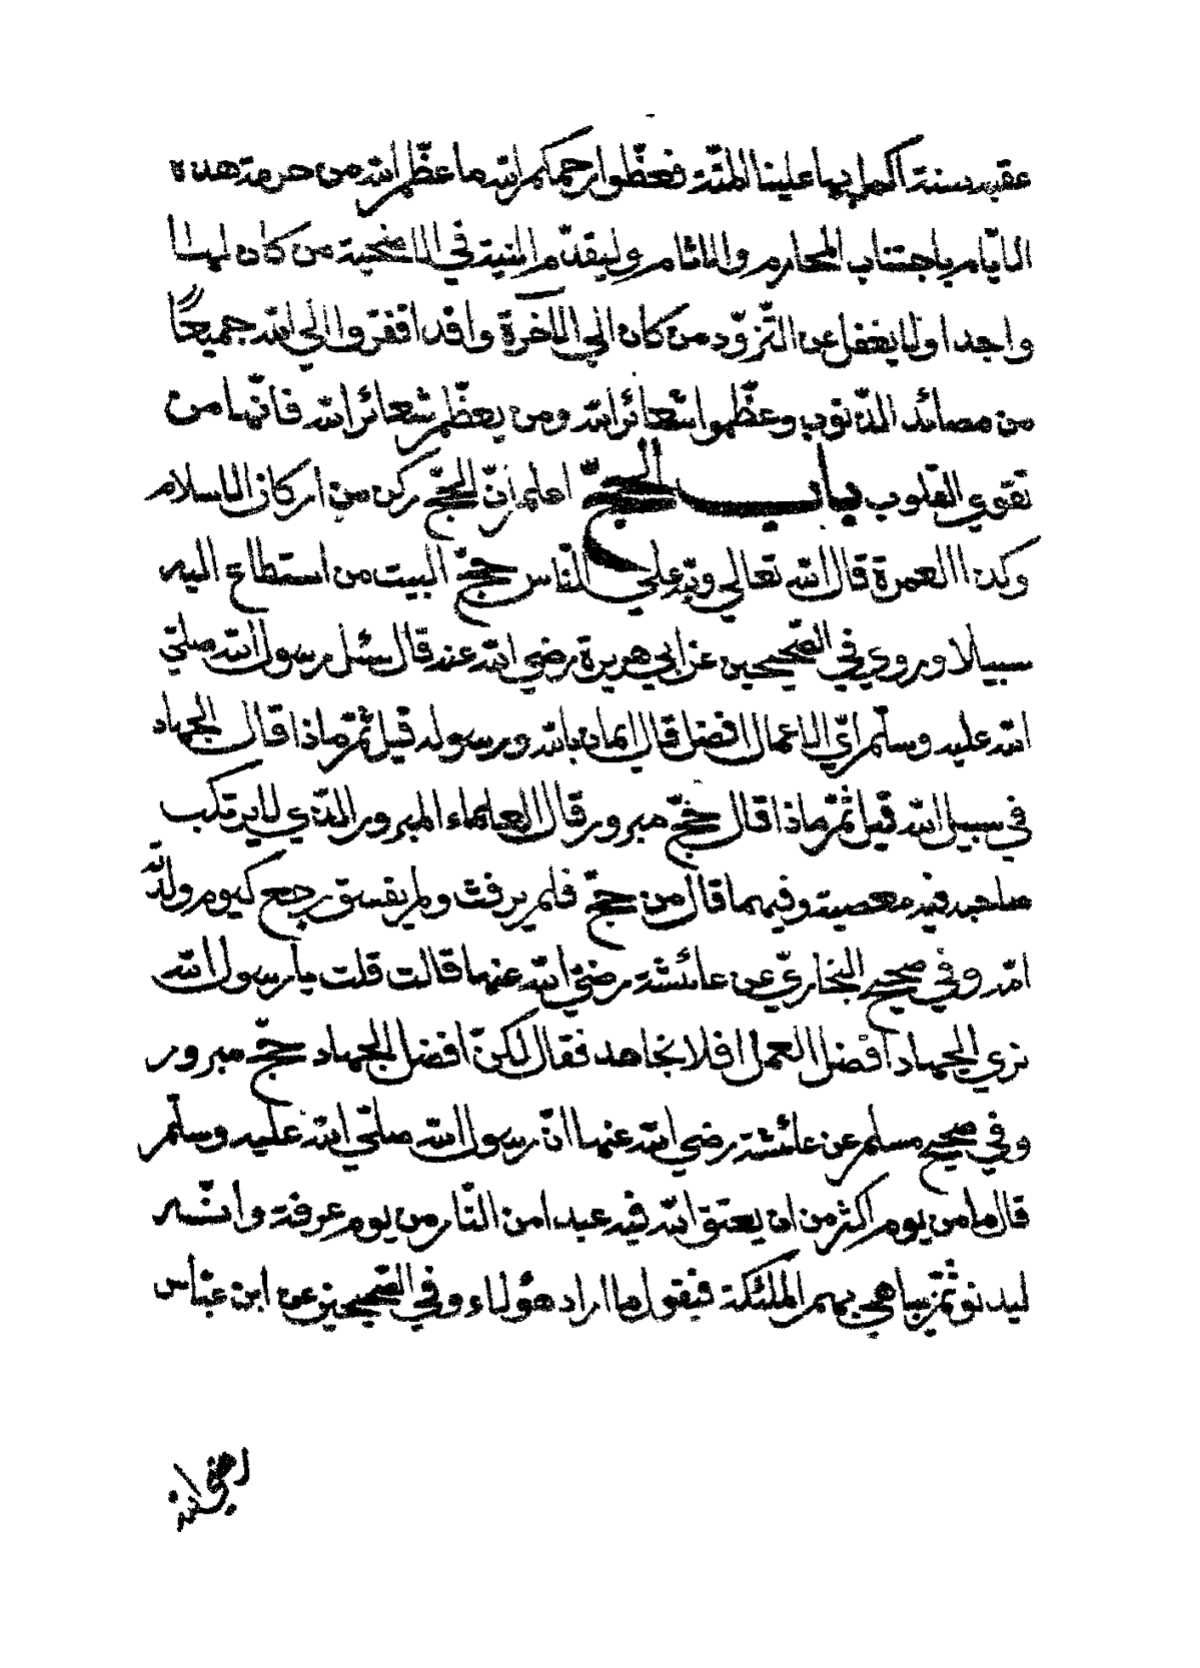 عقيبه سنة اكمل بها علينا المنّة فعظّموا رحمكم الله ما عظّم الله من حرمة هذه
الايّام باجتناب المحارم والاثام وليقدّم النية في الاضحية من كان لها
واجدا ولا يغفل عن التّزوّد من كان الي الآخرة وافد افقروا الي الله جميعًا
من مصائد الذّنوب وعظّموا شعائر الله ومن يعظّم شعائر الله فانّها من
تقوي القلوب باب الحجّ اعلم انّ الحجّ ركن من اركان الاسلام
وكذا العمرة قال الله تعالي ولله علي النّاس حجّ البيت من استطاع اليه
سبيلا وروي في الصّحيحين عن ابي هريرة رضي الله عنه قال سئل رسول الله صلّي
الله عليه وسلّم ايّ الاعمال افضل قال ايمان بالله ورسوله قيل ثمّ ماذا قال الجهاد
في سبيل الله قيل ثمّ ماذا قال حجّ مبرور قال العلماء المبرور الّذي لا يرتكب
صاحبه فيه معصية وفيهما قال من حجّ فلم يرفث ولم يفسق رجع كيوم ولدته
امّه وفي صحيح البخاريّ عن عائشة رضي الله عنها قالت قلت يا رسول الله
نري الجهاد افضل العمل افلا نجاهد فقال لكنّ افضل الجهاد حجّ مبرور
وفي صحيح مسلم عن عائشة رضي الله عنها انّ رسول الله صلّي الله عليه وسلّم
قال ما من يوم اكثر من ان يعتق الله فيه عبدا من النّار من يوم عرفة وانّه
ليدنو ثمّ يباهي بهم الملئكة فيقول ما اراد هؤلاء وفي الصّحيحين عن ابن عبّاس
رضي الله